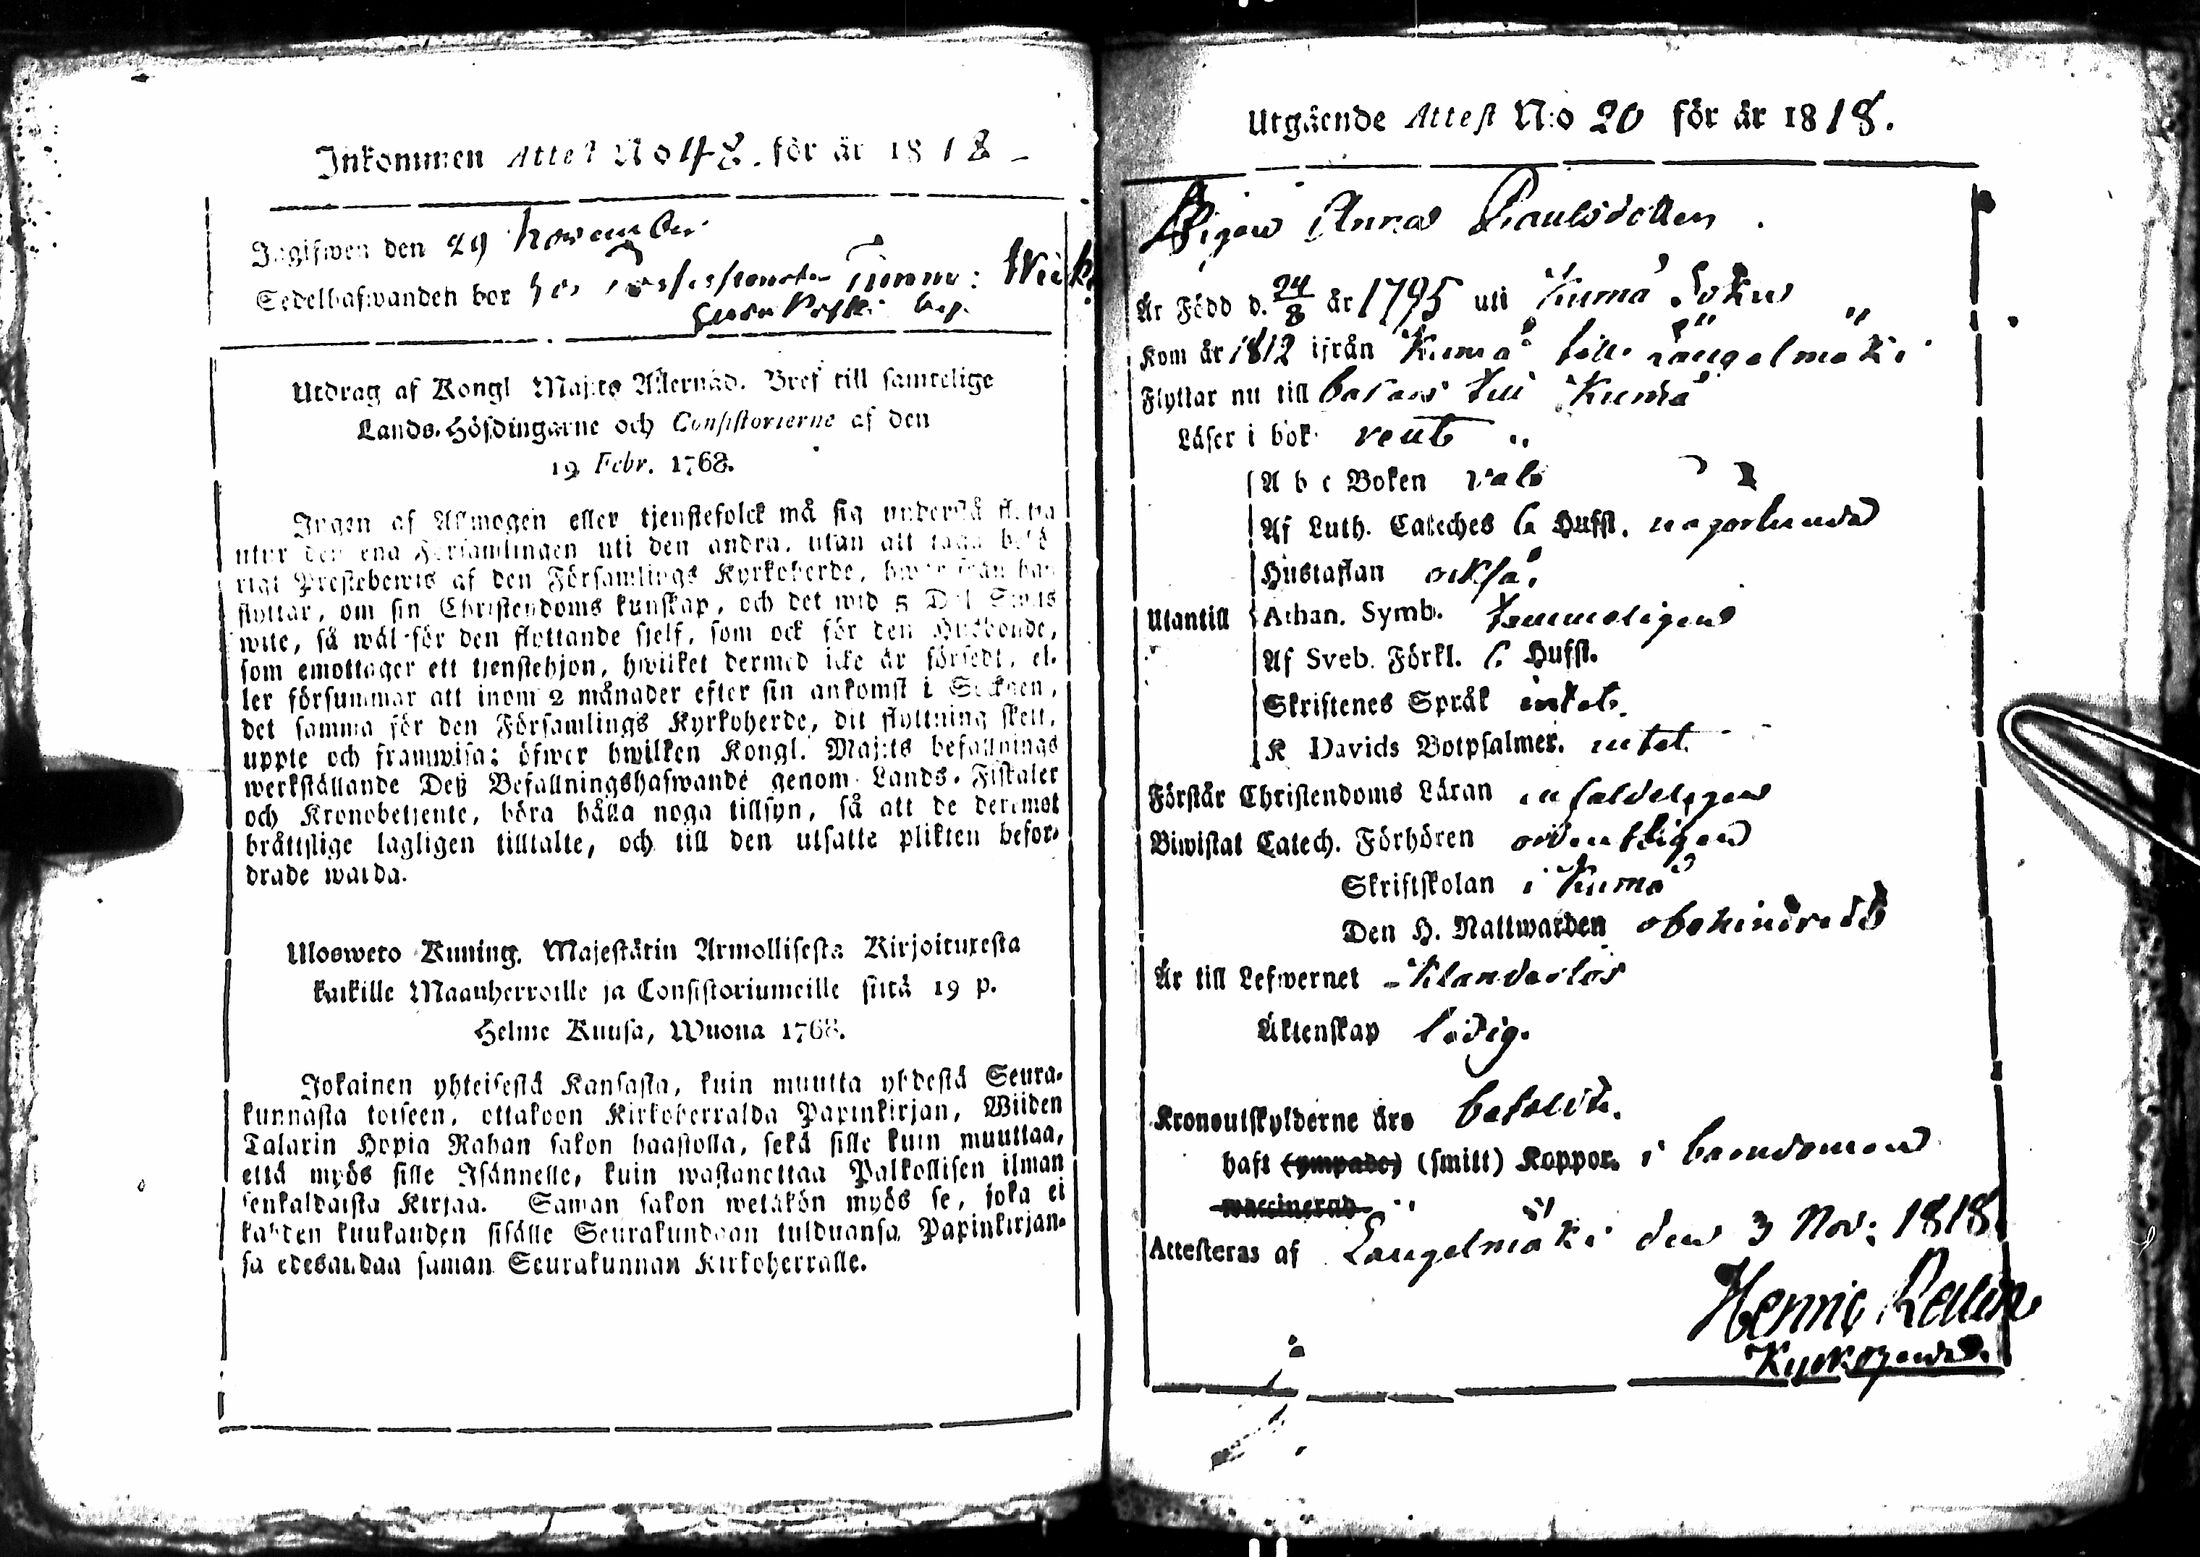 Inkommen Attest No 48. för år 1818
Ingifwen den 29 November
Sedelhafwanden bor hos
Utdrag af Kongl Maj:ts Allernåd. Bref till samtelige
Lands-Höfdingarne och Consistorierne af den
19 Febr. 1768.
Ingen af Allmogen eller tjenstefolck må sig understå flytta
utur den ena Församlingen uti den andra, utan att taga behö-
rigt Prestebewis af den Församlings Kyrkoherde, hwar från han
flyttar, om sin Christendoms kunskap, och det wid 5 Dal. Smts
wite, så wäl för den flyttande sjelf, som ock för den Husbonde,
som emottager ett tjenstehjon, hwilket dermed icke är försedt, el-
ler försummar att inom 2 månader efter sin ankomst i Socknen,
det samma för den Församlings Kyrkoherde, dit flyttning skett,
uppte och framwisa; öfwer hwilken Kongl. Maj:ts befallnings
werkställande Deß Befallningshafwande genom Lands-Fiskaler
och Kronobetjente, böra hålla noga tillsyn, så att de deremot
bråttslige lagligen tilltalte, och till den utsatte plikten befor-
drade warda.
Uloswето Kuning. Majestätin Armollisesta Kirjoituxesta
kaikille Maanherroille ja Consistoriumeille siitä 19 p.
Helme Kuusa, Wuona 1768.
Jokainen yhteisestä Kansasta, kuin muutta yhdestä Seura-
kunnasta toiseen, ottakoon Kirkoherralda Papinkirjan, Wiiden
Talarin Hopia Rahan sakon haastolla, sekä sille kuin muuttaa,
että myös sille Isännelle, kuin wastanottaa Palkollisen ilman
senkaldaista Kirjaa. Saman sakon wetäkön myös se, joka ei
kahden kuukauden sisälle Seurakundaan tulduansa Papinkirjan-
sa edesandaa saman Seurakunnan Kirkoherralle.
Utgående Attest N:o 20 för år 1818.
Pigan Anna Paulsdotter
Är Född d. 24/8 år 1795 uti Kumå Sokn
Kom år 1812 ifrån Kumo till Längelmäki
Flyttar nu till bakars till Kumå
Läser i bok rent
A b c Boken väl
Af Luth. Cateches 6 Hufst. någorlunda
Hustaflan också.
Utantill Athan. Symb. temmeligen
Af Sveb. Förkl. 6 Hufst.
Skriftenes Språk intet.
K Davids Botpsalmer. intet.
Förstår Christendoms Läran enfaldeligen
Biwistat Catech. Förhören ordentligen
Skriftskolan i Kumo
Den H. Nattwarden obehindradt
Är till Lefwernet klanderlös
Äktenskap ledig.
Kronoutskylderne äro betaldt.
haft (ympade) (smitt) Koppor. i barndomen
waccinerad
Attesteras af Längelmäki den 3 Nov: 1818
Henric